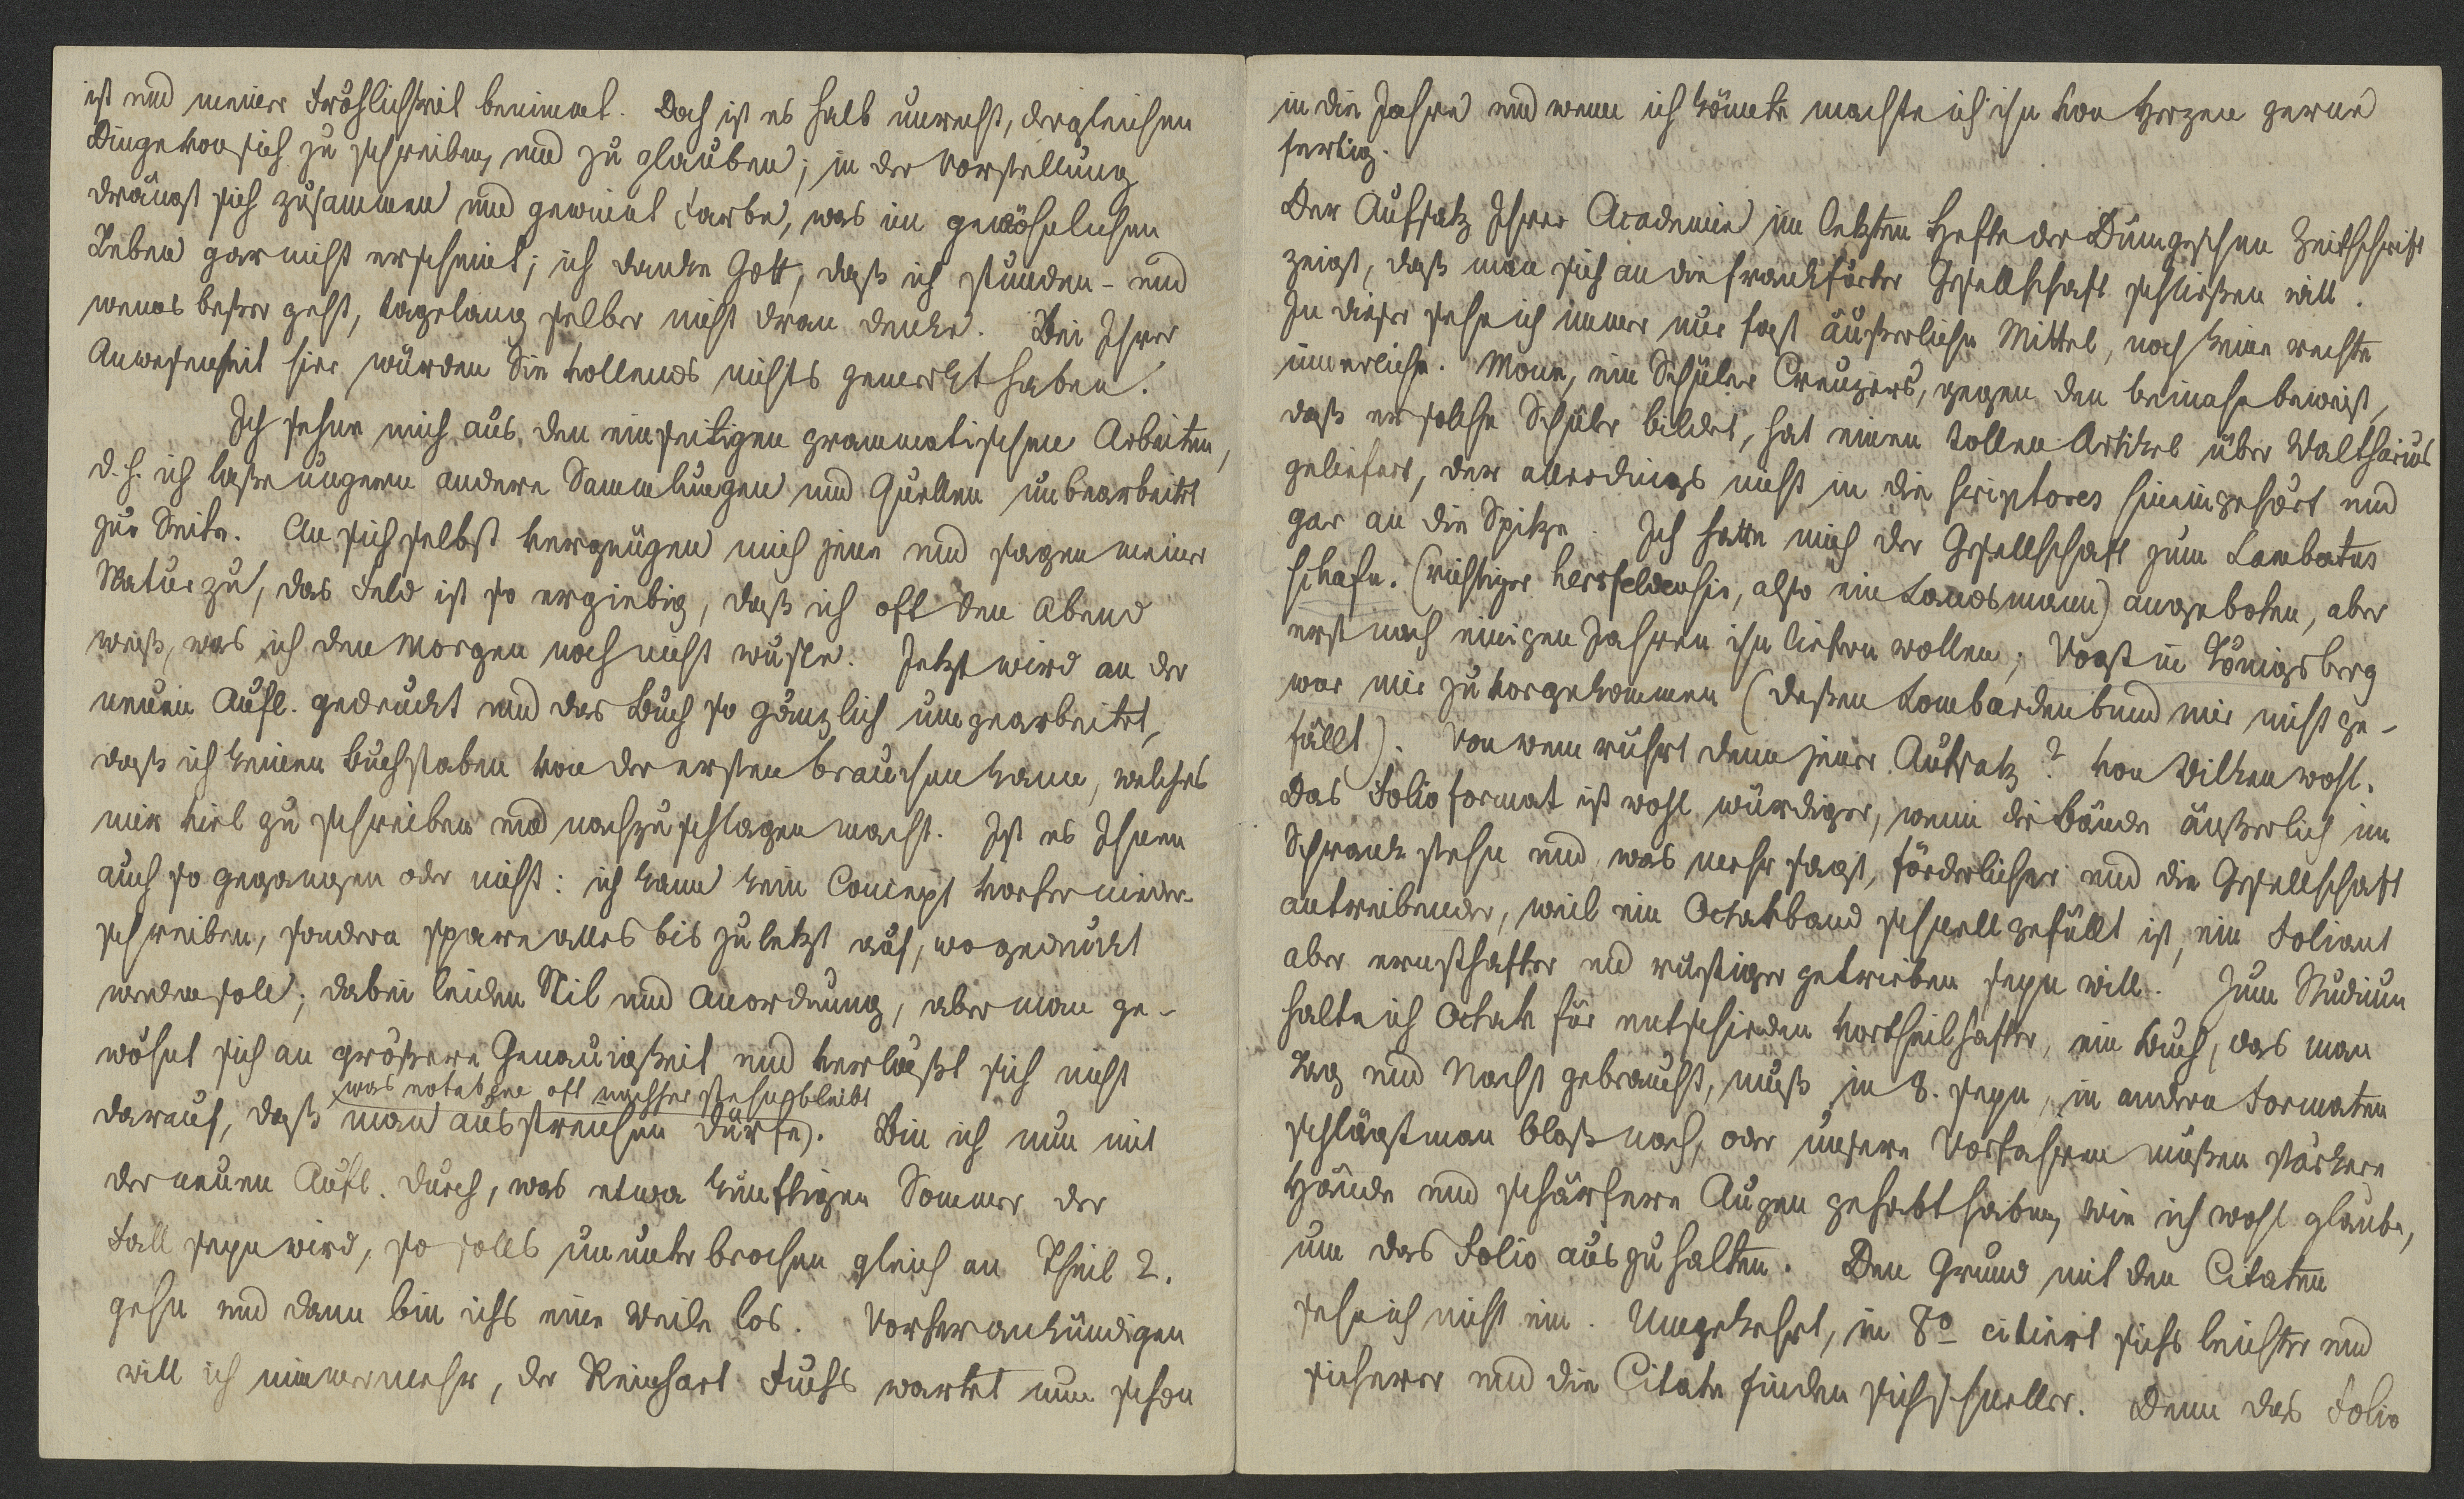 ist und meiner Fröhlichkeit benimmt. Doch ist es halb unrecht, dergleichen
Dinge von sich zu schreiben und zu glauben; in der Vorstellung
drängt sich zusammen und gewinnt Farbe, was im gewöhnlichen
Leben gar nicht erscheint; ich danke Gott, daß ich stunden- und
wenns beßer geht, tagelang selber nicht dran denke. Bei Ihrer
Anwesenheit hier würden Sie vollends nichts gemerkt haben.
Ich sehne mich aus den einseitigen grammatischen Arbeiten,
d. h. ich laße ungern andere Sammlungen und Quellen unbearbeitet
zur Seite. An sich selbst vergnügen mich jene und sagen meiner
Natur zu, das Feld ist so ergiebig, daß ich oft den Abend
weiß, was ich den Morgen noch nicht wuste. Jetzt wird an der
neuen Aufl. gedruckt und das Buch so gänzlich umgearbeitet,
daß ich keinen Buchstaben von der ersten brauchen kann, welches
mir viel zu schreiben und nachzuschlagen macht. Ist es Ihnen
auch so gegangen oder nicht: ich kann kein Concept vorher nieder-
schreiben, sondern spare alles bis zuletzt auf, wo gedruckt
werden soll; dabei leiden Stil und Anordnung, aber man ge-
wöhnt sich an größere Genauigkeit und verläßt sich nicht
was notabene oft nachher stehn bleibt
darauf, daß man ausstreichen dürfe). Bin ich nun mit
der neuen Aufl. durch, was etwa künftigen Sommer der
Fall seyn wird, so solls ununterbrochen gleich an Theil 2.
gehn und dann bin ichs eine Weile los. Vorherankündigen
will ich nimmermehr, der Reinhart Fuchs wartet nun schon
in die Jahre und wenn ich könnte machte ich ihn von Herzen gerne
fertig.
Der Aufsatz Ihrer Academie im letzten Hefte der Dümgeschen Zeitschrift
zeigt, daß man sich an die frankfurter Gesellschaft schließen will.
In dieser sehe ich immer nur fast äußerliche Mittel, noch keine rechte
innerliche. Mone, ein Schüler Creuzers, gegen den beinahe beweist,
daß er solche Schüler bildet, hat einen tollen Artikel über Waltharius
geliefert, der allerdings nicht in die scriptores hineingehört und
gar an die Spitze. Ich hatte mich der Gesellschaft zum Lambertus
schafn. (richtiger hersfeldensis, also ein Landsmann) angeboten, aber
erst nach einigen Jahren ihn liefern wollen; Voigt in Königsberg
war mir zuvorgekommen (deßen Lombardenbund mir nicht ge-
fällt). Von wem rührt denn jener Aufsatz? von Wilken wohl.
Das Folioformat ist wohl würdiger, wenn die Bände äußerlich im
Schrank stehn und, was mehr sagt, förderlicher und die Gesellschaft
antreibender, weil ein Octavband schnell gefüllt ist, ein Foliant
aber ernsthafter und rüstiger getrieben seyn will. Zum Studium
halte ich Octav für entschieden vortheilhafter, ein Buch, das man
Tag und Nacht gebraucht, muß in 8. seyn, in andern Formaten
schlägt man bloß nach, oder unsere Vorfahren müßen stärkere
Hände und schärfere Augen gehabt haben, wie ich wohl glaube,
um das Folio auszuhalten. Den Grund mit den Citaten
sehe ich nicht ein. Umgekehrt, in 8º citiert sichs leichter und
sicherer und die Citate finden sich schneller. Denn das Folio